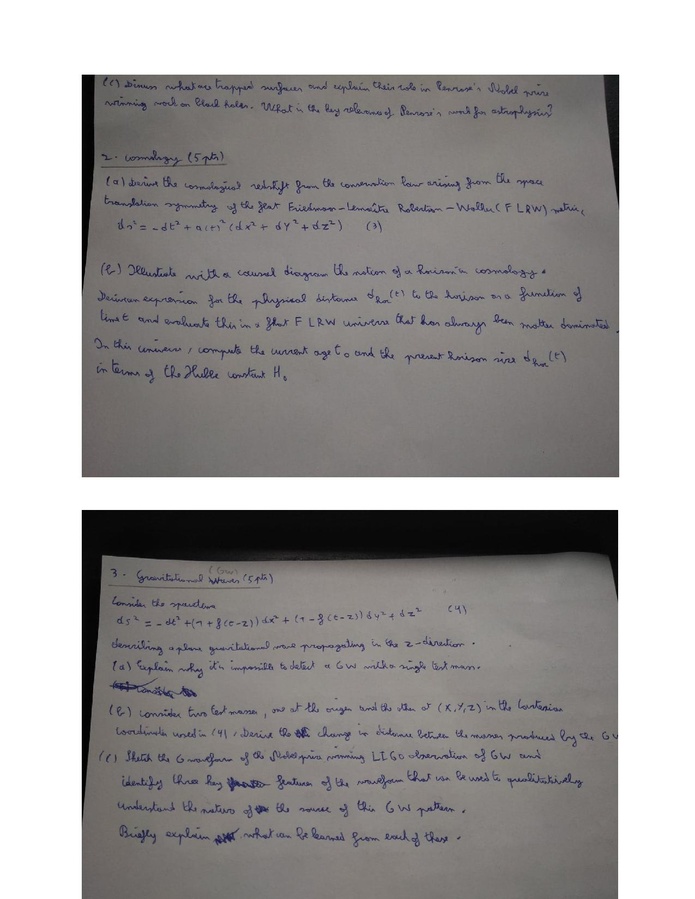 (c) Discuss what are trapped surfaces and explain their role in Penrose's Nobel prize
winning work on Black holes. What is the key relevance of Penrose's work for astrophysics?
2. cosmology (5 pts)
(a) Derive the cosmological redshift from the conservation law arising from the space
translation symmetry of the flat Friedman-Lemaître Robertson-Walker (FLRW) metric,
ds² = -dt² + a(t)² (dx² + dy² + dz²) (3)
(b) Illustrate with a causal diagram the notion of a horizon in cosmology.
Derive an expression for the physical distance d_hor(t) to the horizon as a function of
time t and evaluate this in a flat FLRW universe that has always been matter dominated.
In this universe, compute the current age t₀ and the present horizon size d_hor(t)
in terms of the Hubble constant H₀
3. Gravitational Waves (GW) (5 pts)
Consider the spacetime
ds² = -dt² + (1 + f(t-z)) dx² + (1 - f(t-z)) dy² + dz² (4)
describing a plane gravitational wave propagating in the z-direction.
(a) Explain why it is impossible to detect a GW with a single test mass.
(b) consider two test masses, one at the origin and the other at (X,Y,Z) in the Cartesian
coordinates used in (4). Derive the change in distance between the masses produced by the GW
(c) Sketch the G waveform of the Nobel prize winning LIGO observation of GW and
identify three key features of the waveform that can be used to qualitatively
understand the nature of the source of this GW pattern.
Briefly explain what can be learned from each of these.